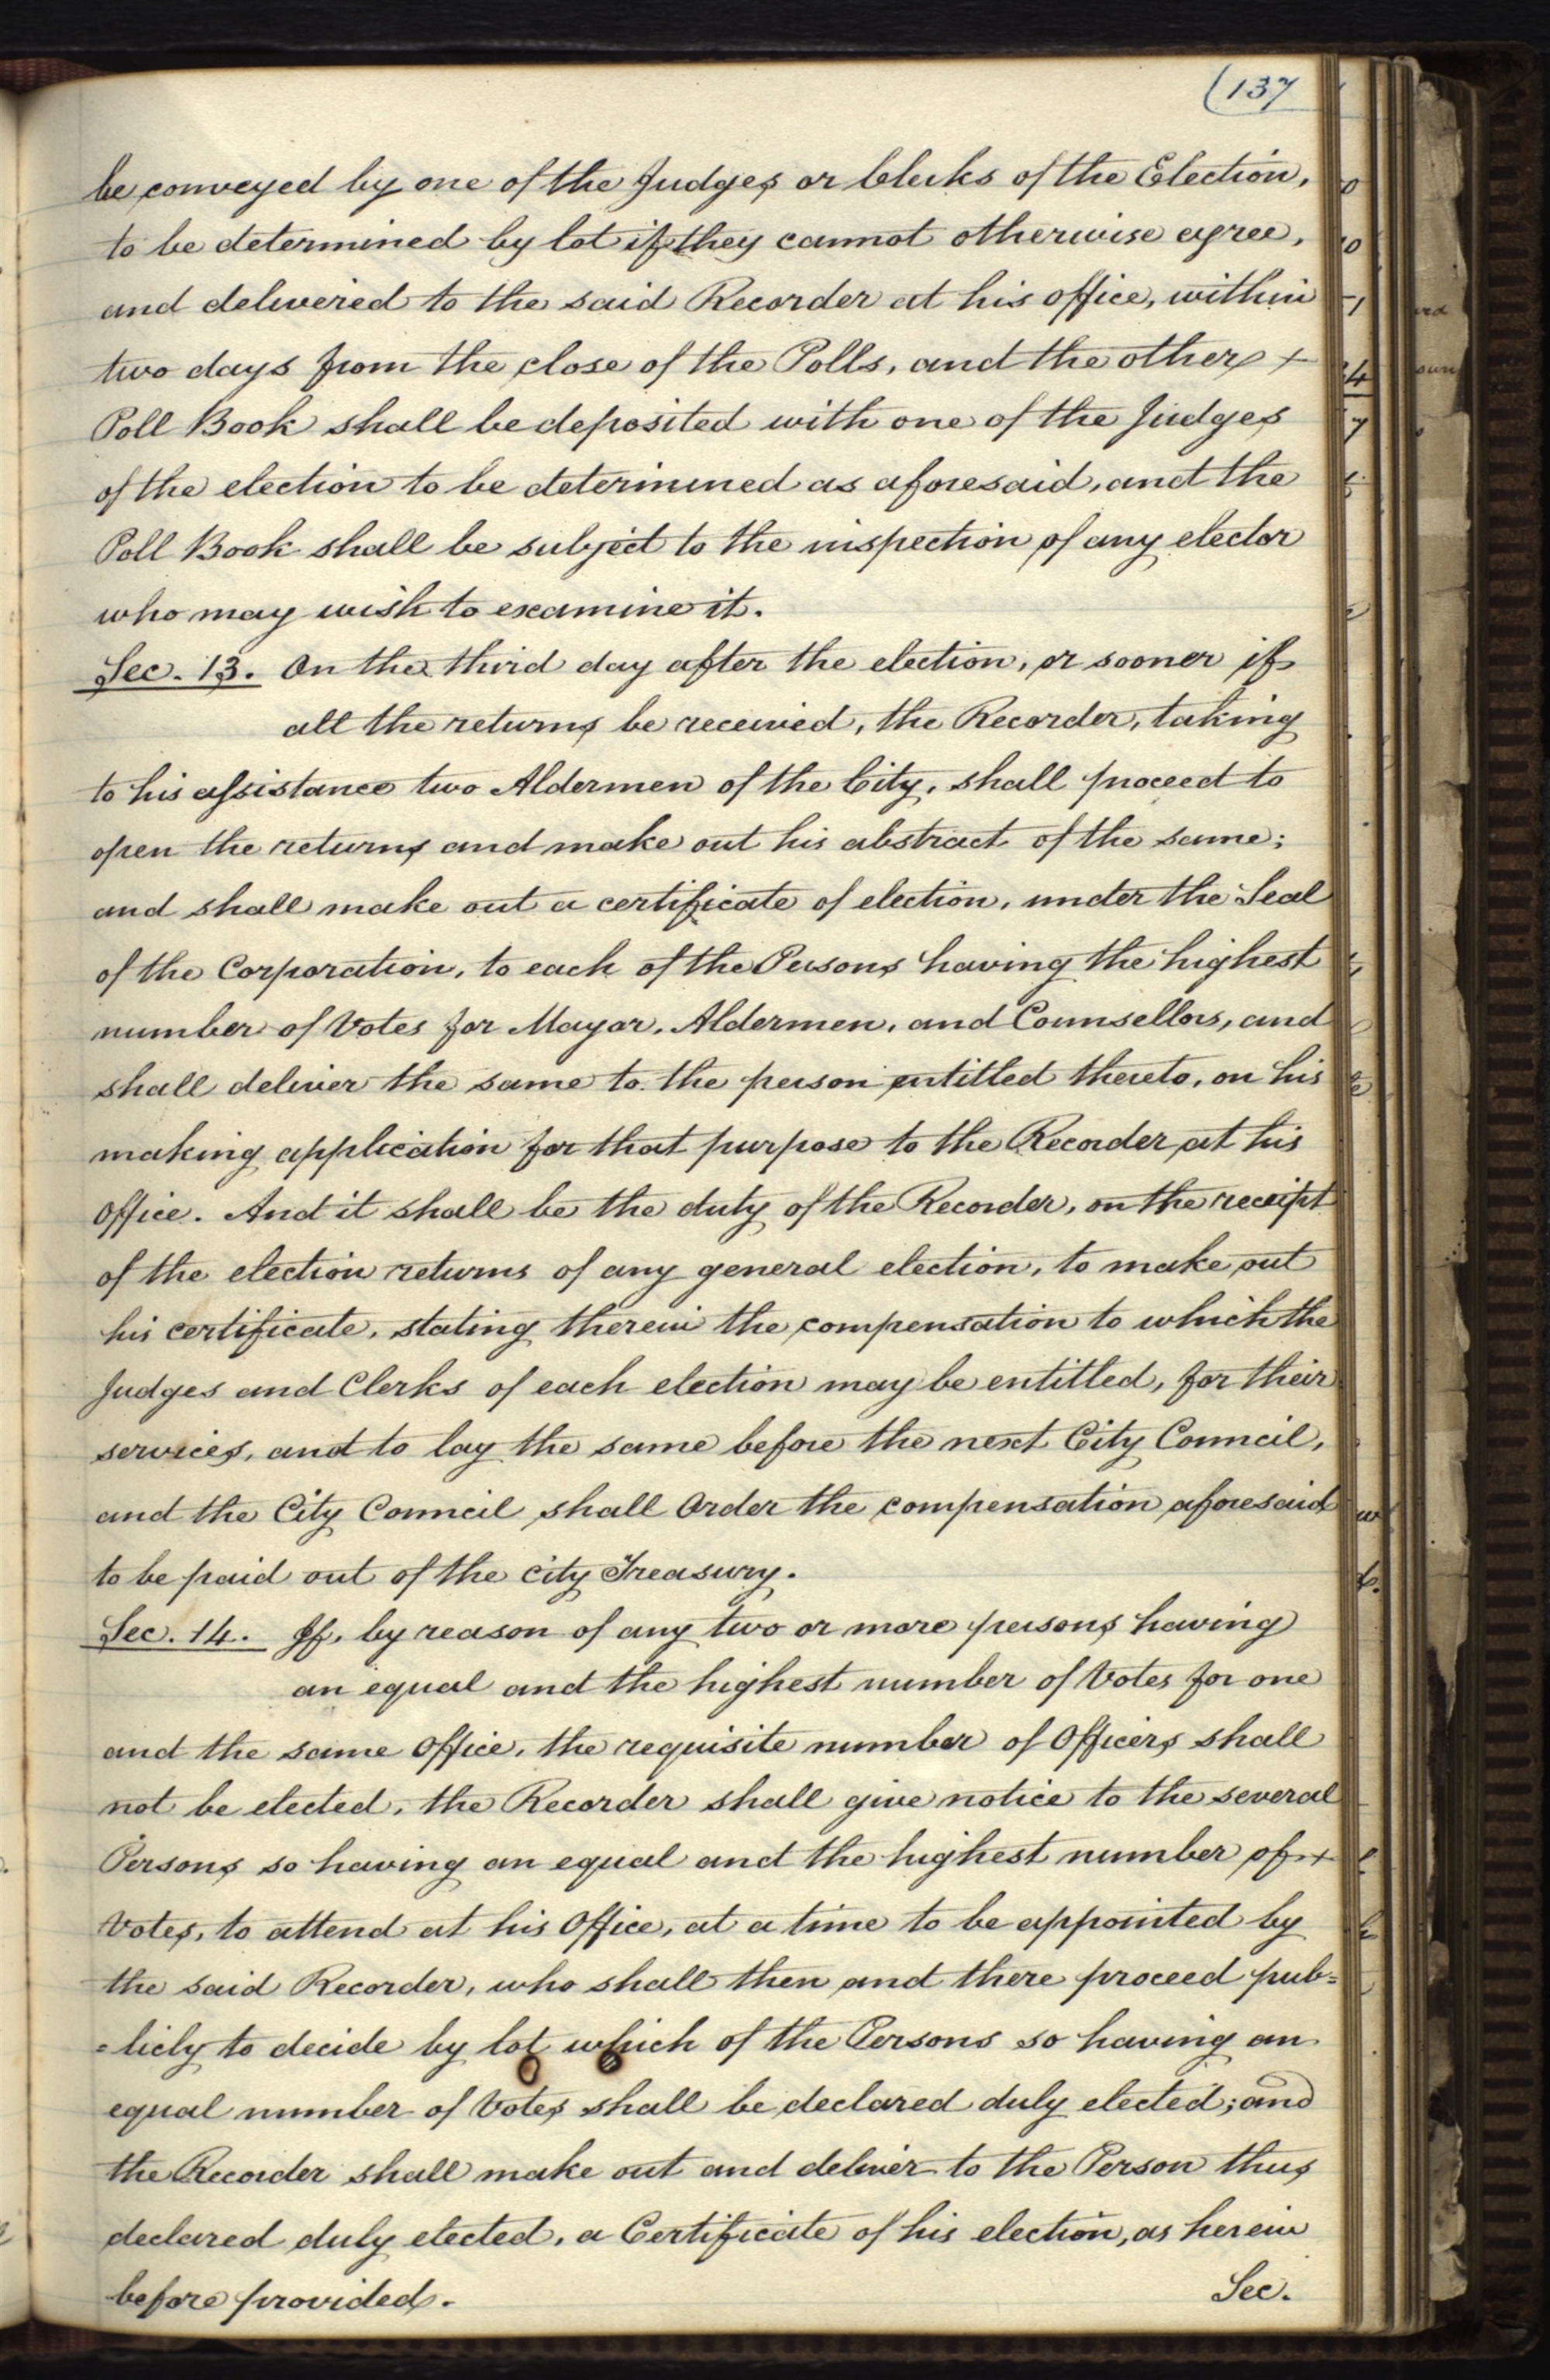 (137
be conveyed by one of the Judges or Clerks of the Election,
to be determined by lot if they cannot otherwise agree,
and delivered to the said Recorder at his office, within
two days from the close of the Polls, and the other +
Poll Book shall be deposited with one of the Judges
of the election to be determined as aforesaid, and the
Poll Book shall be subject to the inspection of any elector
who may wish to examine it.
Sec. 13. On the third day after the election, or sooner if
all the returns be received, the Recorder, taking
to his assistance two Aldermen of the City, shall proceed to
open the returns and make out his abstract of the same;
and shall make out a certificate of election, under the Seal
of the Corporation, to each of the Persons having the highest
number of Votes for Mayor, Aldermen, and Counsellors, and
shall deliver the same to the person entitled thereto, on his
making application for that purpose to the Recorder at his
Office. And it shall be the duty of the Recorder, on the receipt
of the election returns of any general election, to make out
his certificate, stating therein the compensation to which the
Judges and Clerks of each election may be entitled, for their
services, and to lay the same before the next City Council,
and the City Council shall Order the compensation aforesaid
to be paid out of the City Treasury.
Sec. 14. If, by reason of any two or more persons having
an equal and the highest number of Votes for one
and the same Office, the requisite number of Officers shall
not be elected, the Recorder shall give notice to the several
Persons so having an equal and the highest number of +
Votes, to attend at his Office, at a time to be appointed by
the said Recorder, who shall then and there proceed pub=
=licly to decide by lot which of the Persons so having an
equal number of Votes shall be declared duly elected; and
the Recorder shall make out and deliver to the Person thus
declared duly elected, a Certificate of his election, as herein
before provided. Sec.